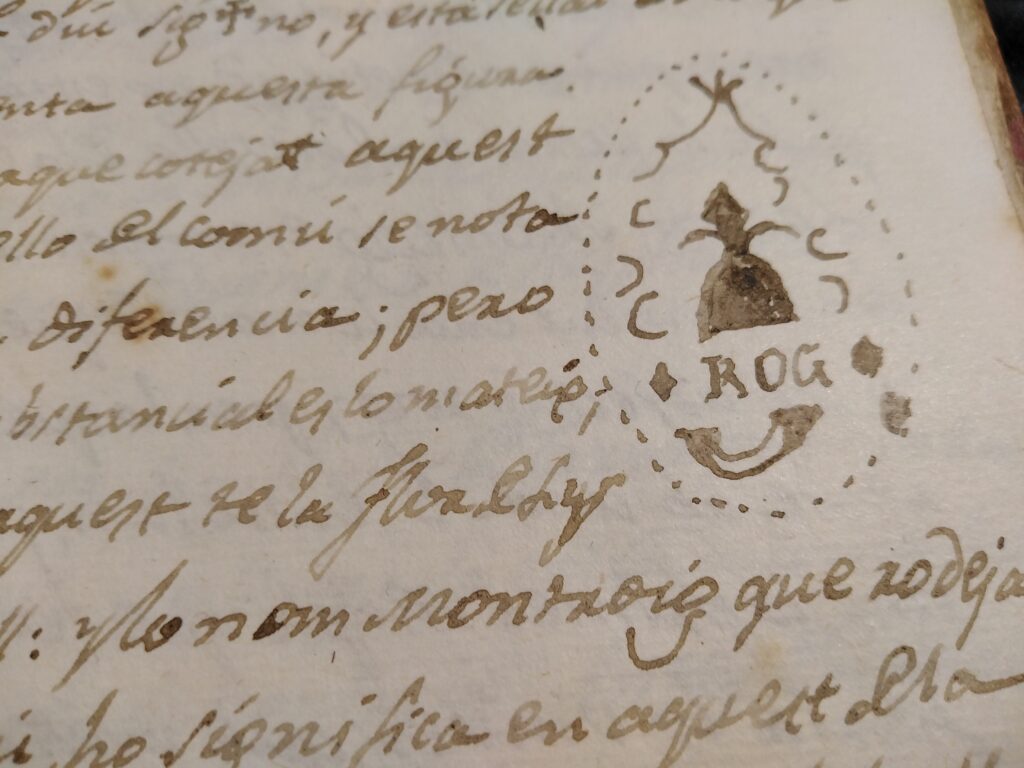 diu sig no, y esta
enta aquesta figura.
aque cotejat aquest
ello del comú se nota
diferencia; pero
bstancial es lo mateix;
ROG
aquest te la flor de Lys
ll: y lo nom Montroig que rodeja
ui, ho significa en aquest de la